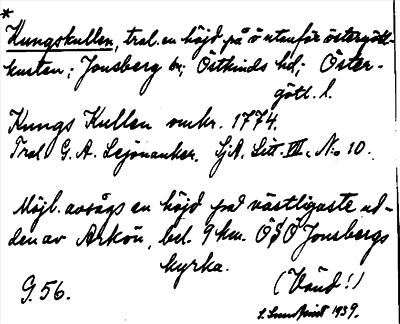 *
Kungskullen, trol. en höjd på ö utanför östergöt-
kusten; Jonsberg sn; Östkinds hd; Öster-
götl. l.
Kungs Kullen omkr. 1774.
Trol G. A. Lejonanker. SjA. Litt. VII, No 10.
Möjl. avsågs en höjd på västligaste ud-
den av Arkön, bel. 9 km. ÖSÖ Jonsbergs
kyrka.
G. 56.
(Vänd!)
1939.